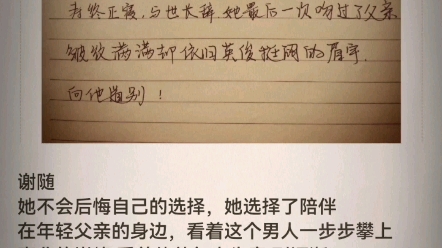 寿终正寝,与世长辞,她最后一次吻过了父亲
皱纹满满却依旧英俊挺刚的眉宇
向他道别!
谢随
她不会后悔自己的选择,她选择了陪伴
在年轻父亲的身边,看着这个男人一步步攀上